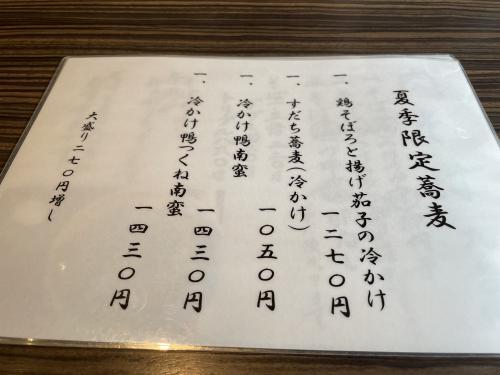 夏季限定蕎麦
一、鶏そぼろと揚げ茄子の冷かけ
一二七〇円
一、すだち蕎麦(冷かけ)
一〇五〇円
一、冷かけ鴨南蛮
一四三〇円
一、冷かけ鴨つくね南蛮
一四三〇円
大盛り二七〇円増し